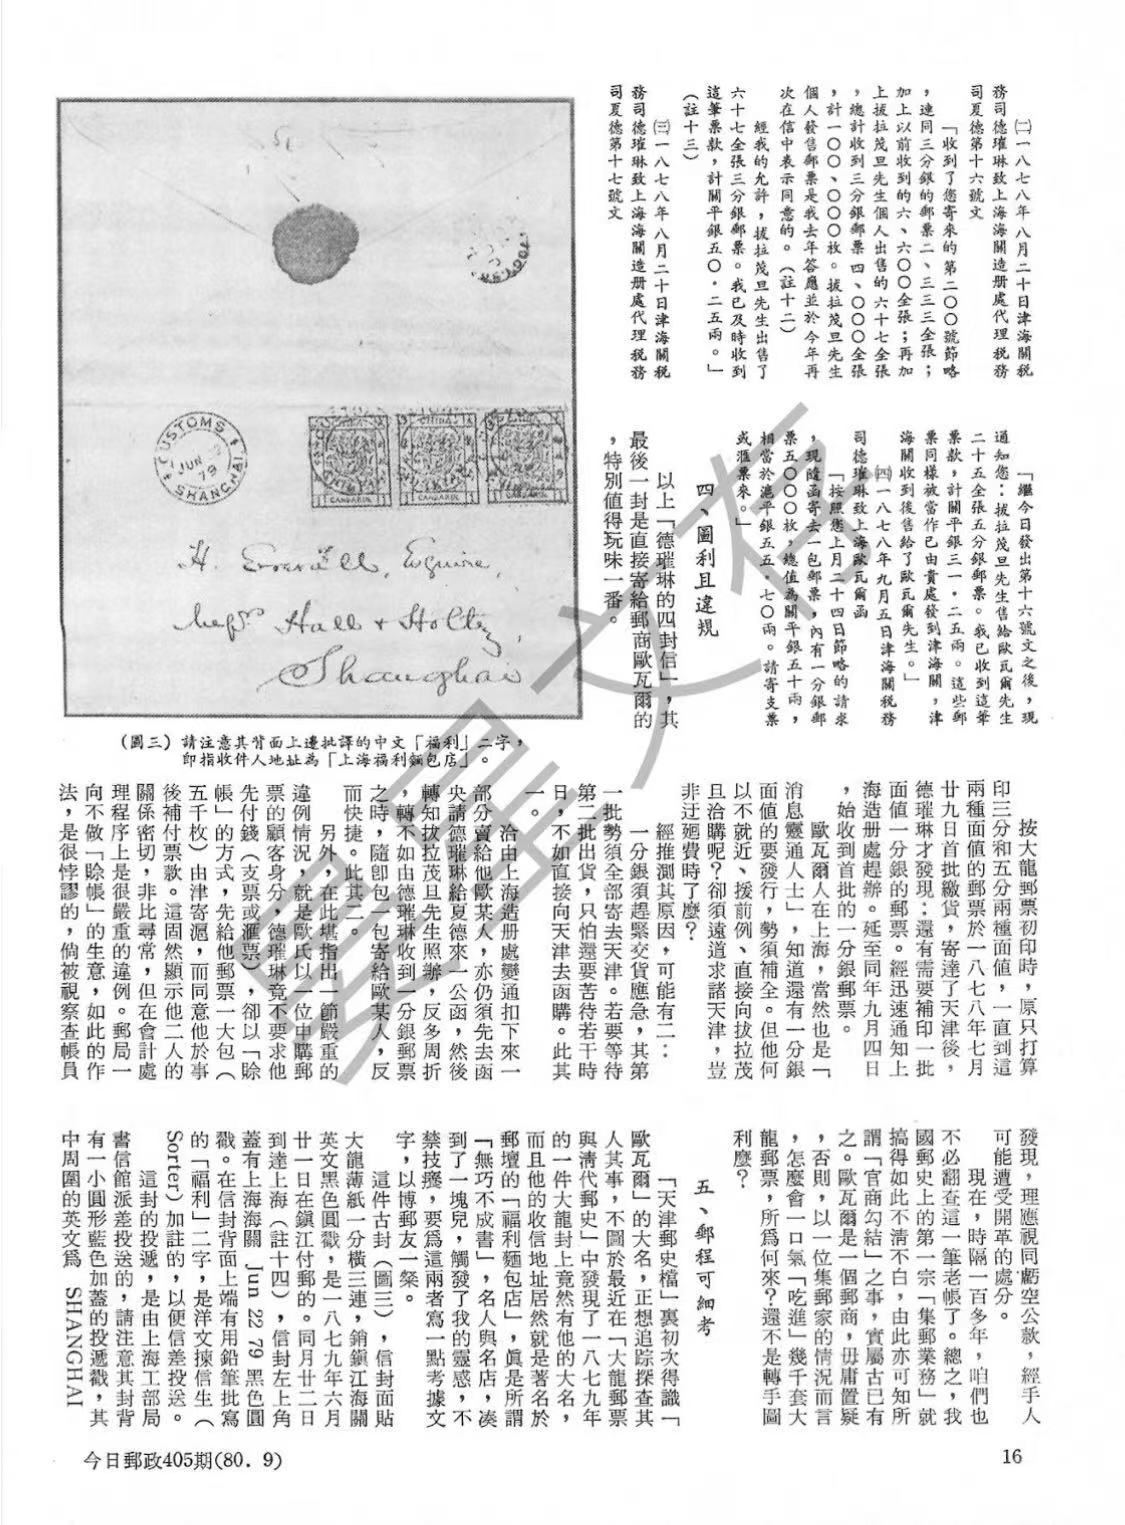 ㈡一八七八年八月二十日津海關税
務司德璀琳致上海海關造册處代理税務
司夏德第十六號文
「收到了您寄來的第二〇〇號節略
，連同三分銀的郵票二、三三三全張；
加上以前收到的六、六〇〇全張；再加
上拔拉茂旦先生個人出售的六十七全張
，總計收到三分銀郵票四、〇〇〇全張
，計一〇〇、〇〇〇枚。拔拉茂旦先生
個人發售郵票是我去年答應並於今年再
次在信中表示同意的。（註十二）
經我的允許，拔拉茂旦先生出售了
六十七全張三分銀郵票。我已及時收到
這筆票款，計關平銀五〇．二五兩。」
（註十三）
㈢一八七八年八月二十日津海關税
務司德璀琳致上海海關造册處代理税務
司夏德第十七號文
「繼今日發出第十六號文之後，現
通知您：拔拉茂旦先生售給歐瓦爾先生
二十五全張五分銀郵票。我已收到這筆
票款，計關平銀三一．二五兩。這些郵
票同樣被當作已由貴處發到津海關，津
海關收到後售給了歐瓦爾先生。」
㈣一八七八年九月五日津海關税務
司德璀琳致上海歐瓦爾函
「按照您上月二十四日節略的請求
，現隨函寄去一包郵票，內有一分銀郵
票五〇〇〇枚，總值為關平銀五十兩，
相當於滬平銀五五．七〇兩。請寄支票
或滙票來。」
四、圖利且違規
以上「德璀琳的四封信」，其
最後一封是直接寄給郵商歐瓦爾的
，特別值得玩味一番。
CUSTOMS
JUN 22
79
SHANGHAI
CHINA
CANDARIN
CANDARIN
CANDARIN
H. Everall, Esquire,
Messrs Hall & Holtz,
Shanghai
（圖三）請注意其背面上邊批譯的中文「福利」二字，
即指收件人地址為「上海福利麵包店」。
按大龍郵票初印時，原只打算
印三分和五分兩種面值，一直到這
兩種面值的郵票於一八七八年七月
廿九日首批繳貨，寄達了天津後，
德璀琳才發現：還有需要補印一批
面值一分銀的郵票。經迅速通知上
海造册處趕辦。延至同年九月四日
，始收到首批的一分銀郵票。
歐瓦爾人在上海，當然也是「
消息靈通人士」，知道還有一分銀
面值的要發行，勢須補全。但他何
以不就近、援前例、直接向拔拉茂
旦洽購呢？卻須遠道求諸天津，豈
非迂廻費時了麼？
經推測其原因，可能有二：
一分銀須趕緊交貨應急，其第
一批勢須全部寄去天津。若要等待
第二批出貨，只怕還要苦待若干時
日，不如直接向天津去函購。此其
一。
洽由上海造册處變通扣下來一
部分賣給他歐某人，亦仍須先去函
央請德璀琳給夏德來一公函，然後
轉知拔拉茂旦先生照辦，反多周折
，轉不如由德璀琳收到一分銀郵票
之時，隨卽包一包寄給歐某人，反
而快捷。此其二。
另外，在此堪指出一節嚴重的
違例情況，就是歐氏以一位申購郵
票的顧客身分，德璀琳竟不要求他
先付錢（支票或滙票），卻以「賒
帳」的方式，先給他郵票一大包（
五千枚）由津寄滬，而同意他於事
後補付票款。這固然顯示他二人的
關係密切，非比尋常，但在會計處
理程序上是很嚴重的違例。郵局一
向不做「賒帳」的生意，如此的作
法，是很悖謬的，倘被視察查帳員
發現，理應視同虧空公款，經手人
可能遭受開革的處分。
現在，時隔一百多年，咱們也
不必翻查這一筆老帳了。總之，我
國郵史上的第一宗「集郵業務」就
搞得如此不清不白，由此亦可知所
謂「官商勾結」之事，實屬古已有
之。歐瓦爾是一個郵商，毋庸置疑
，否則，以一位集郵家的情況而言
，怎麼會一口氣「吃進」幾千套大
龍郵票，所爲何來？還不是轉手圖
利麼？
五、郵程可細考
「天津郵史檔」裏初次得識「
歐瓦爾」的大名，正想追踪探查其
人其事，不圖於最近在「大龍郵票
與淸代郵史」中發現了一八七九年
的一件大龍封上竟然有他的大名，
而且他的收信地址居然就是著名於
郵壇的「福利麵包店」，眞是所謂
「無巧不成書」，名人與名店，湊
到了一塊兒，觸發了我的靈感，不
禁技癢，要爲這兩者寫一點考據文
字，以博郵友一粲。
這件古封（圖三），信封面貼
大龍薄紙一分橫三連，銷鎭江海關
英文黑色圓戳，是一八七九年六月
廿一日在鎭江付郵的。同月廿二日
到達上海（註十四），信封左上角
蓋有上海海關 Jun 22 79 黑色圓
戳。在信封背面上端有用鉛筆批寫
的「福利」二字，是洋文揀信生（
Sorter）加註的，以便信差投送。
這封的投遞，是由上海工部局
書信館派差投送的，請注意其封背
有一小圓形藍色加蓋的投遞戳，其
中周圍的英文爲 SHANGHAI
今日郵政405期(80．9)
16